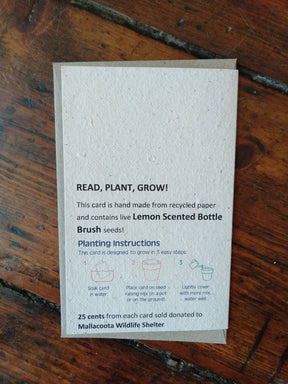 READ, PLANT, GROW!
This card is hand made from recycled paper
and contains live Lemon Scented Bottle
Brush seeds!
Planting Instructions
This card is designed to grow in 3 easy steps:
1 2 3
Soak card
in water.
Place card on seed
raising mix on a pot
or on the ground.
Lightly cover
with more mix,
water well.
25 cents from each card sold donated to
Mallacoota Wildlife Shelter